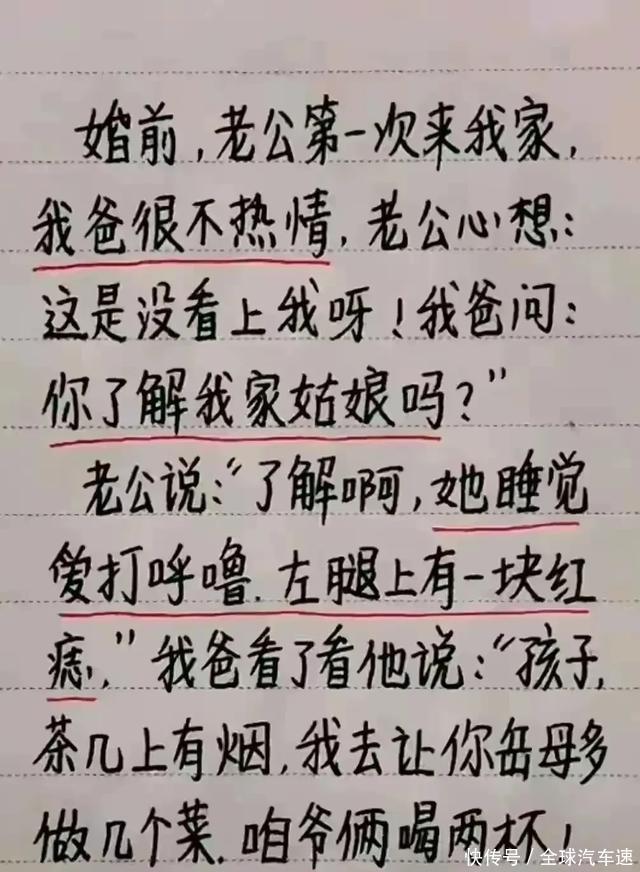 婚前,老公第一次来我家,
我爸很不热情,老公心想:
这是没看上我呀!我爸问:
你了解我家姑娘吗?”
老公说:“了解啊,她睡觉
爱打呼噜.左腿上有一块红
痣,”我爸看了看他说:“孩子,
茶几上有烟,我去让你岳母多
做几个菜.咱爷俩喝两杯!
快传号/全球汽车速